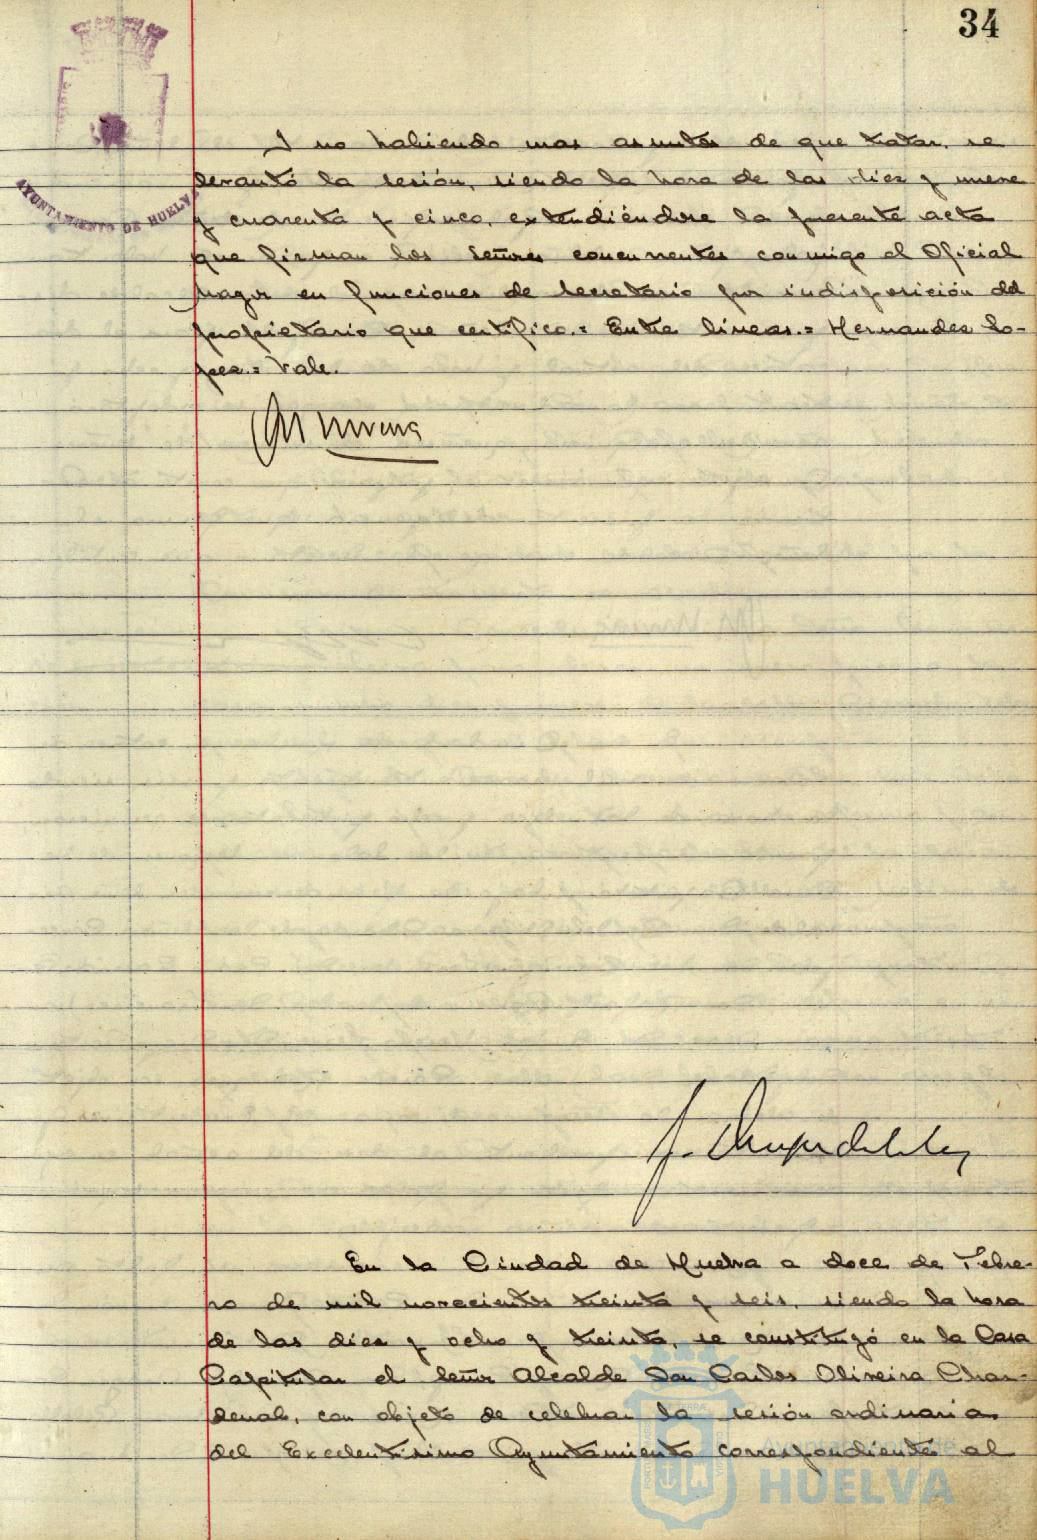 34
AYUNTAMIENTO DE HUELVA
I no habiendo mas asuntos de que tratar, se
levantó la sesión, siendo la hora de las diez y nueve
y cuarenta y cinco, extendiéndose la presente acta
que firman los Señores concurrentes conmigo el Oficial
Mayor en funciones de Secretario por indisposición del
propietario que certifico.= Entre lineas.= Hernandez Lo-
pez.= Vale.
En la Ciudad de Huelva a doce de Febre-
ro de mil novecientos treinta y seis, siendo la hora
de las diez y ocho y treinta, se constituyó en la Casa
Capitular el Señor Alcalde Don Carlos Oliveira Chan-
denal, con objeto de celebrar la sesión ordinaria
del Excelentisimo Ayuntamiento correspondiente al
Ayuntamiento de
HUELVA